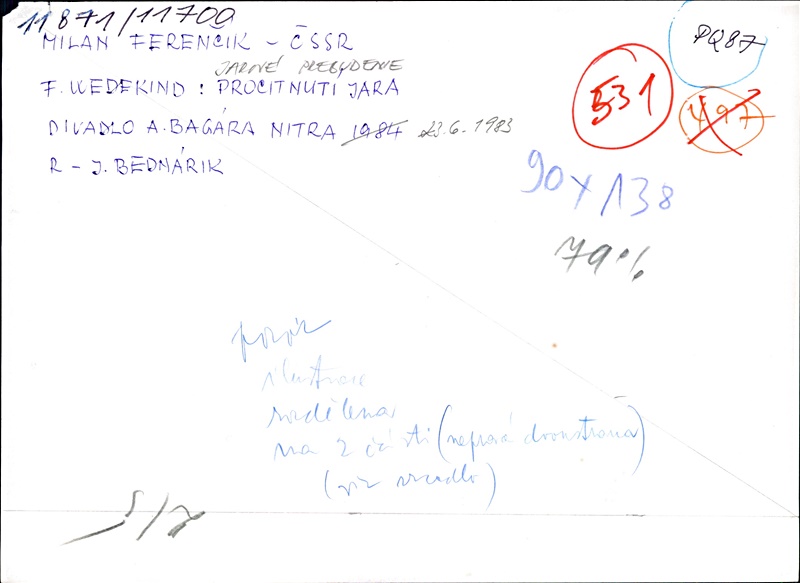 11871/11700
MILAN FERENČIK – ČSSR
JARNÉ PREBUDENIE
F. WEDEKIND : PROCITNUTI JARA
DIVADLO A. BAGÁRA NITRA 1984 23.6.1983
R – J. BEDNÁRIK
PQ87
531
497
90 x 138
79%
pozor
ilustrace
rozdělena
na 2 části (nepravá dvoustrana)
(viz zrcadlo)